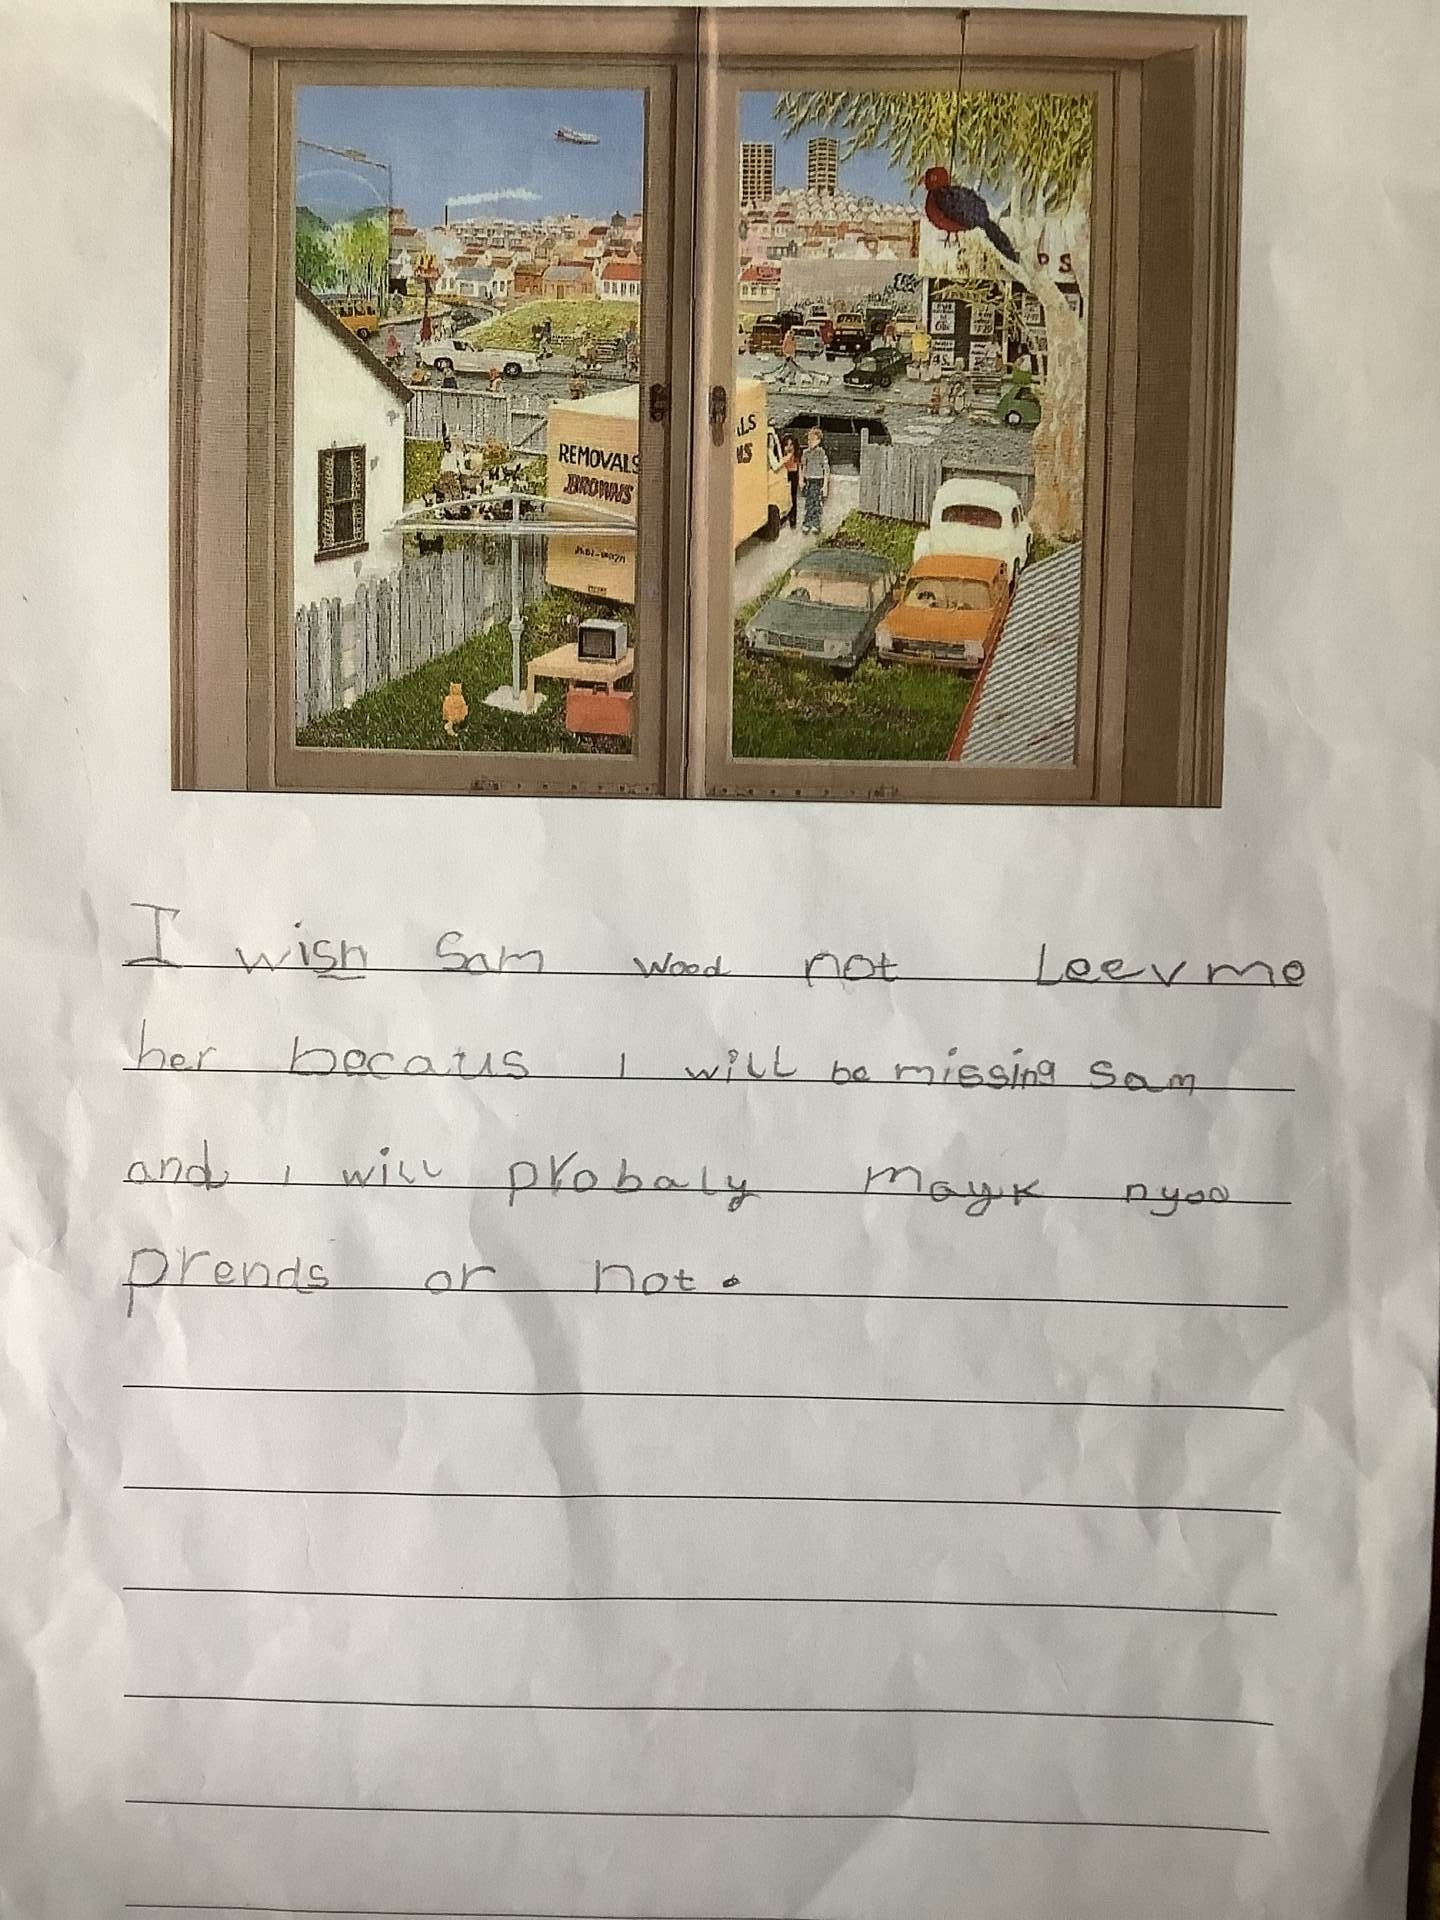 REMOVALS
BROWNS
ALS
NS
DS
I wish Sam wood not Leev me
her becaus I will be missing sam
and i will probaly mayk nyoo
prends or not.